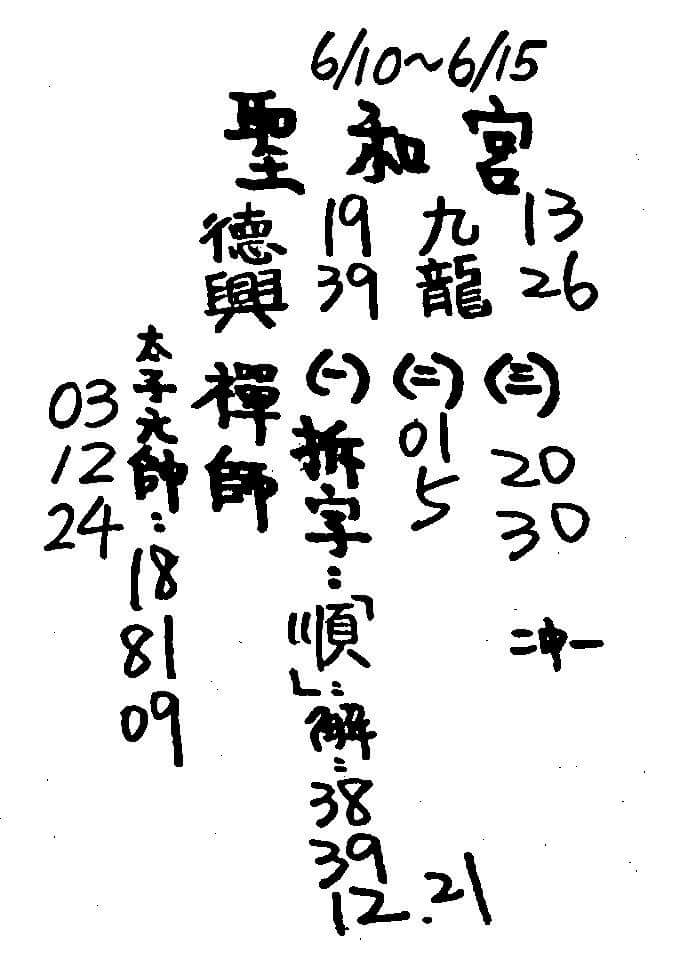 6/10～6/15
聖和宮
德興禪師
19
39
九龍
13
26
(一)
拆字：「順」：解：
38
39
12.21
(二)
01
5
(三)
20
30
二中一
太子元帥：
18
81
09
03
12
24